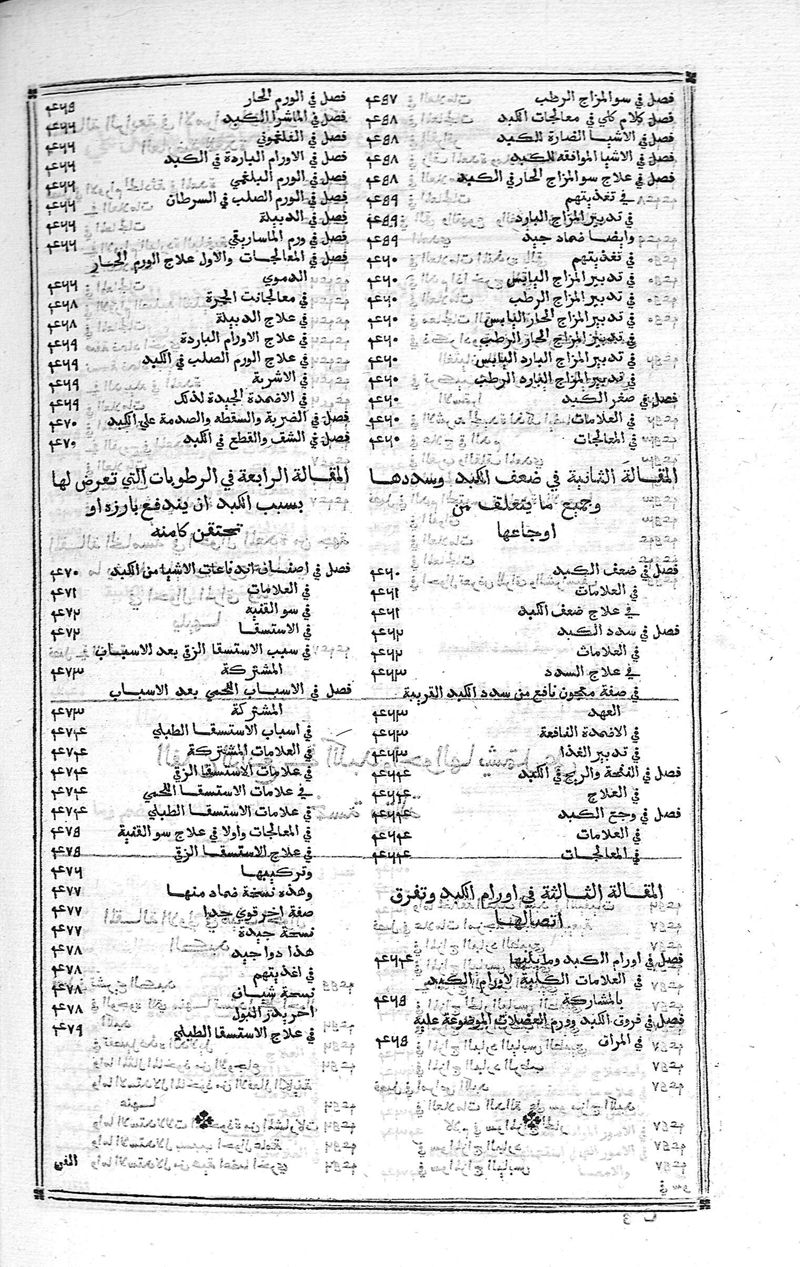 فصل في سو المزاج الرطب ٤٥٧
فصل كلام كلي في معالجات الكبد ٤٥٨
فصل في الاشيا الضارة للكبد ٤٥٨
فصل في الاشيا الموافقه للكبد ٤٥٨
فصل في علاج سو المزاج الحار في الكبد ٤٥٨
في تغذيتهم ٤٥٩
في تدبير المزاج البارد ٤٥٩
وايضا ضماد جيد ٤٥٩
في تغذيتهم ٤٦٠
في تدبير المزاج اليابس ٤٦٠
في تدبير المزاج الرطب ٤٦٠
في تدبير المزاج الحار اليابس ٤٦٠
في تدبير المزاج الحار الرطب ٤٦٠
في تدبير المزاج البارد اليابس ٤٦٠
في تدبير المزاج البارد الرطب ٤٦٠
فصل في صغر الكبد ٤٦٠
في العلامات ٤٦٠
في المعالجات ٤٦٠
المقالة الثانية في ضعف الكبد وسددها
وجميع ما يتعلق من
اوجاعها
فصل في ضعف الكبد ٤٦٠
في العلامات ٤٦١
في علاج ضعف الكبد ٤٦١
فصل في سدد الكبد ٤٦٢
في العلامات ٤٦٢
في علاج السدد ٤٦٢
في صفة معجون نافع من سدد الكبد القريبة
العهد ٤٦٣
في الاضمدة النافعة ٤٦٣
في تدبير الغذا ٤٦٣
فصل في النفخة والريح في الكبد ٤٦٤
في العلاج ٤٦٤
فصل في وجع الكبد ٤٦٤
في العلامات ٤٦٤
في المعالجات ٤٦٤
المقالة الثالثة في اورام الكبد وتفرق
اتصالها
فصل في اورام الكبد وما يليها ٤٦٤
في العلامات الكلية لاورام الكبد
بالمشاركة ٤٦٥
فصل في فروق الكبد وورم العضلات الموضوعة عليه
في المراق ٤٦٥
فصل في الورم الحار ٤٦٥
فصل في الماشرا الكبد ٤٦٦
فصل في الفلغموني ٤٦٦
فصل في الاورام الباردة في الكبد ٤٦٦
فصل في الورم البلغمي ٤٦٦
فصل في الورم الصلب في السرطان ٤٦٦
فصل في الدبيلة ٤٦٦
فصل في ورم الماساريقي ٤٦٦
فصل في المعالجات والاول علاج الورم الحار
الدموي ٤٦٦
في معالجات الحمرة ٤٦٨
في علاج الدبيلة ٤٦٨
في علاج الاورام الباردة ٤٦٩
في علاج الورم الصلب في الكبد ٤٦٩
في الاشربة ٤٦٩
في الاضمدة الجيدة لذلك ٤٦٩
فصل في الضربة والسقطه والصدمة علي الكبد ٤٧٠
فصل في الشق والقطع في الكبد ٤٧٠
المقالة الرابعة في الرطوبات التي تعرض لها
بسبب الكبد ان يندفع بارزه او
تحتقن كامنه
فصل في اصناف اندباعات الاشيا من الكبد ٤٧٠
في العلامات ٤٧١
في سو القنيه ٤٧٢
في الاستسقا ٤٧٢
في سبب الاستسقا الزقي بعد الاسباب
المشتركة ٤٧٣
فصل في الاسباب اللحمي بعد الاسباب
المشتركة ٤٧٣
في اسباب الاستسقا الطبلي ٤٧٤
في العلامات المشتركة ٤٧٤
في علامات الاستسقا الزقي ٤٧٤
في علامات الاستسقا اللحمي ٤٧٤
في علامات الاستسقا الطبلي ٤٧٤
في المعالجات واولا في علاج سو القنية ٤٧٥
في علاج الاستسقا الزقي ٤٧٥
وتركيبها ٤٧٦
وهذه نسخة ضماد منها ٤٧٧
صفة اخر قوي جدا ٤٧٧
نسخة جيدة ٤٧٧
هذا دوا جيد ٤٧٨
في اغذيتهم ٤٧٨
نسخة شياف ٤٧٨
اخر يدر البول ٤٧٨
في علاج الاستسقا الطبلي ٤٧٩
الفن